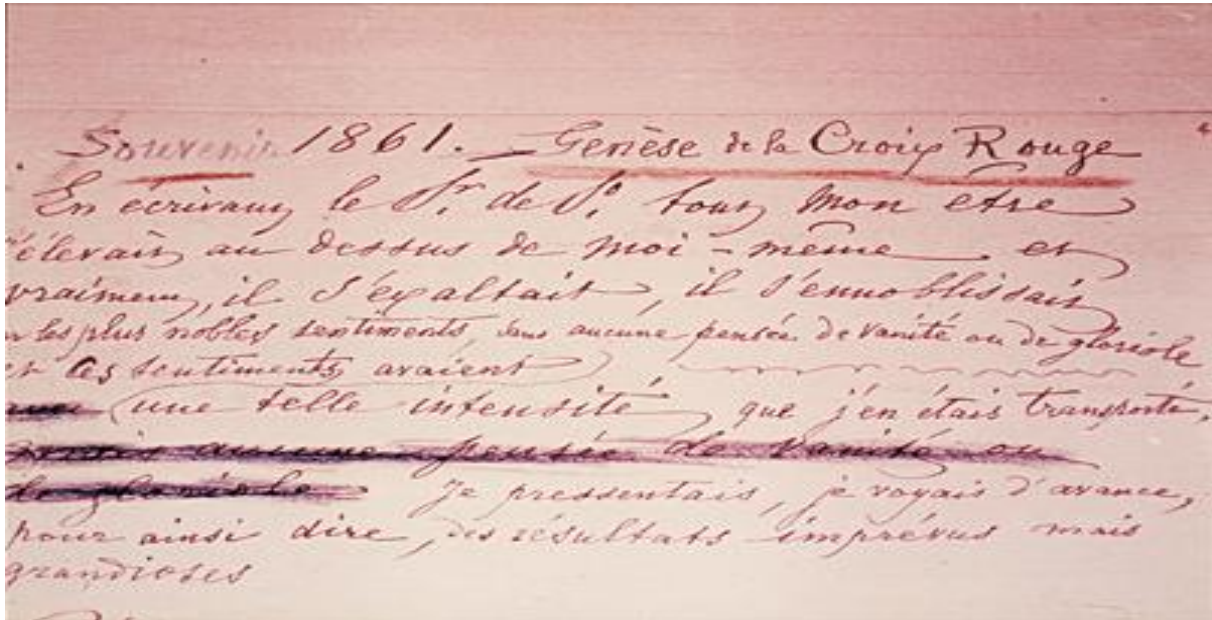 Souvenir 1861. — Genèse de la Croix Rouge
En écrivant le Sr. de So. tout mon être
s'élevait au dessus de moi-même et
vraiment, il s'exaltait, il s'ennoblissait
les plus nobles sentiments, sans aucune pensée de vanité ou de gloriole
et ces sentiments avaient
(une telle intensité, que j'en étais transporté.
aucune pensée de vanité ou
de gloriole Je pressentais, je voyais d'avance,
pour ainsi dire, des résultats imprévus mais
grandioses